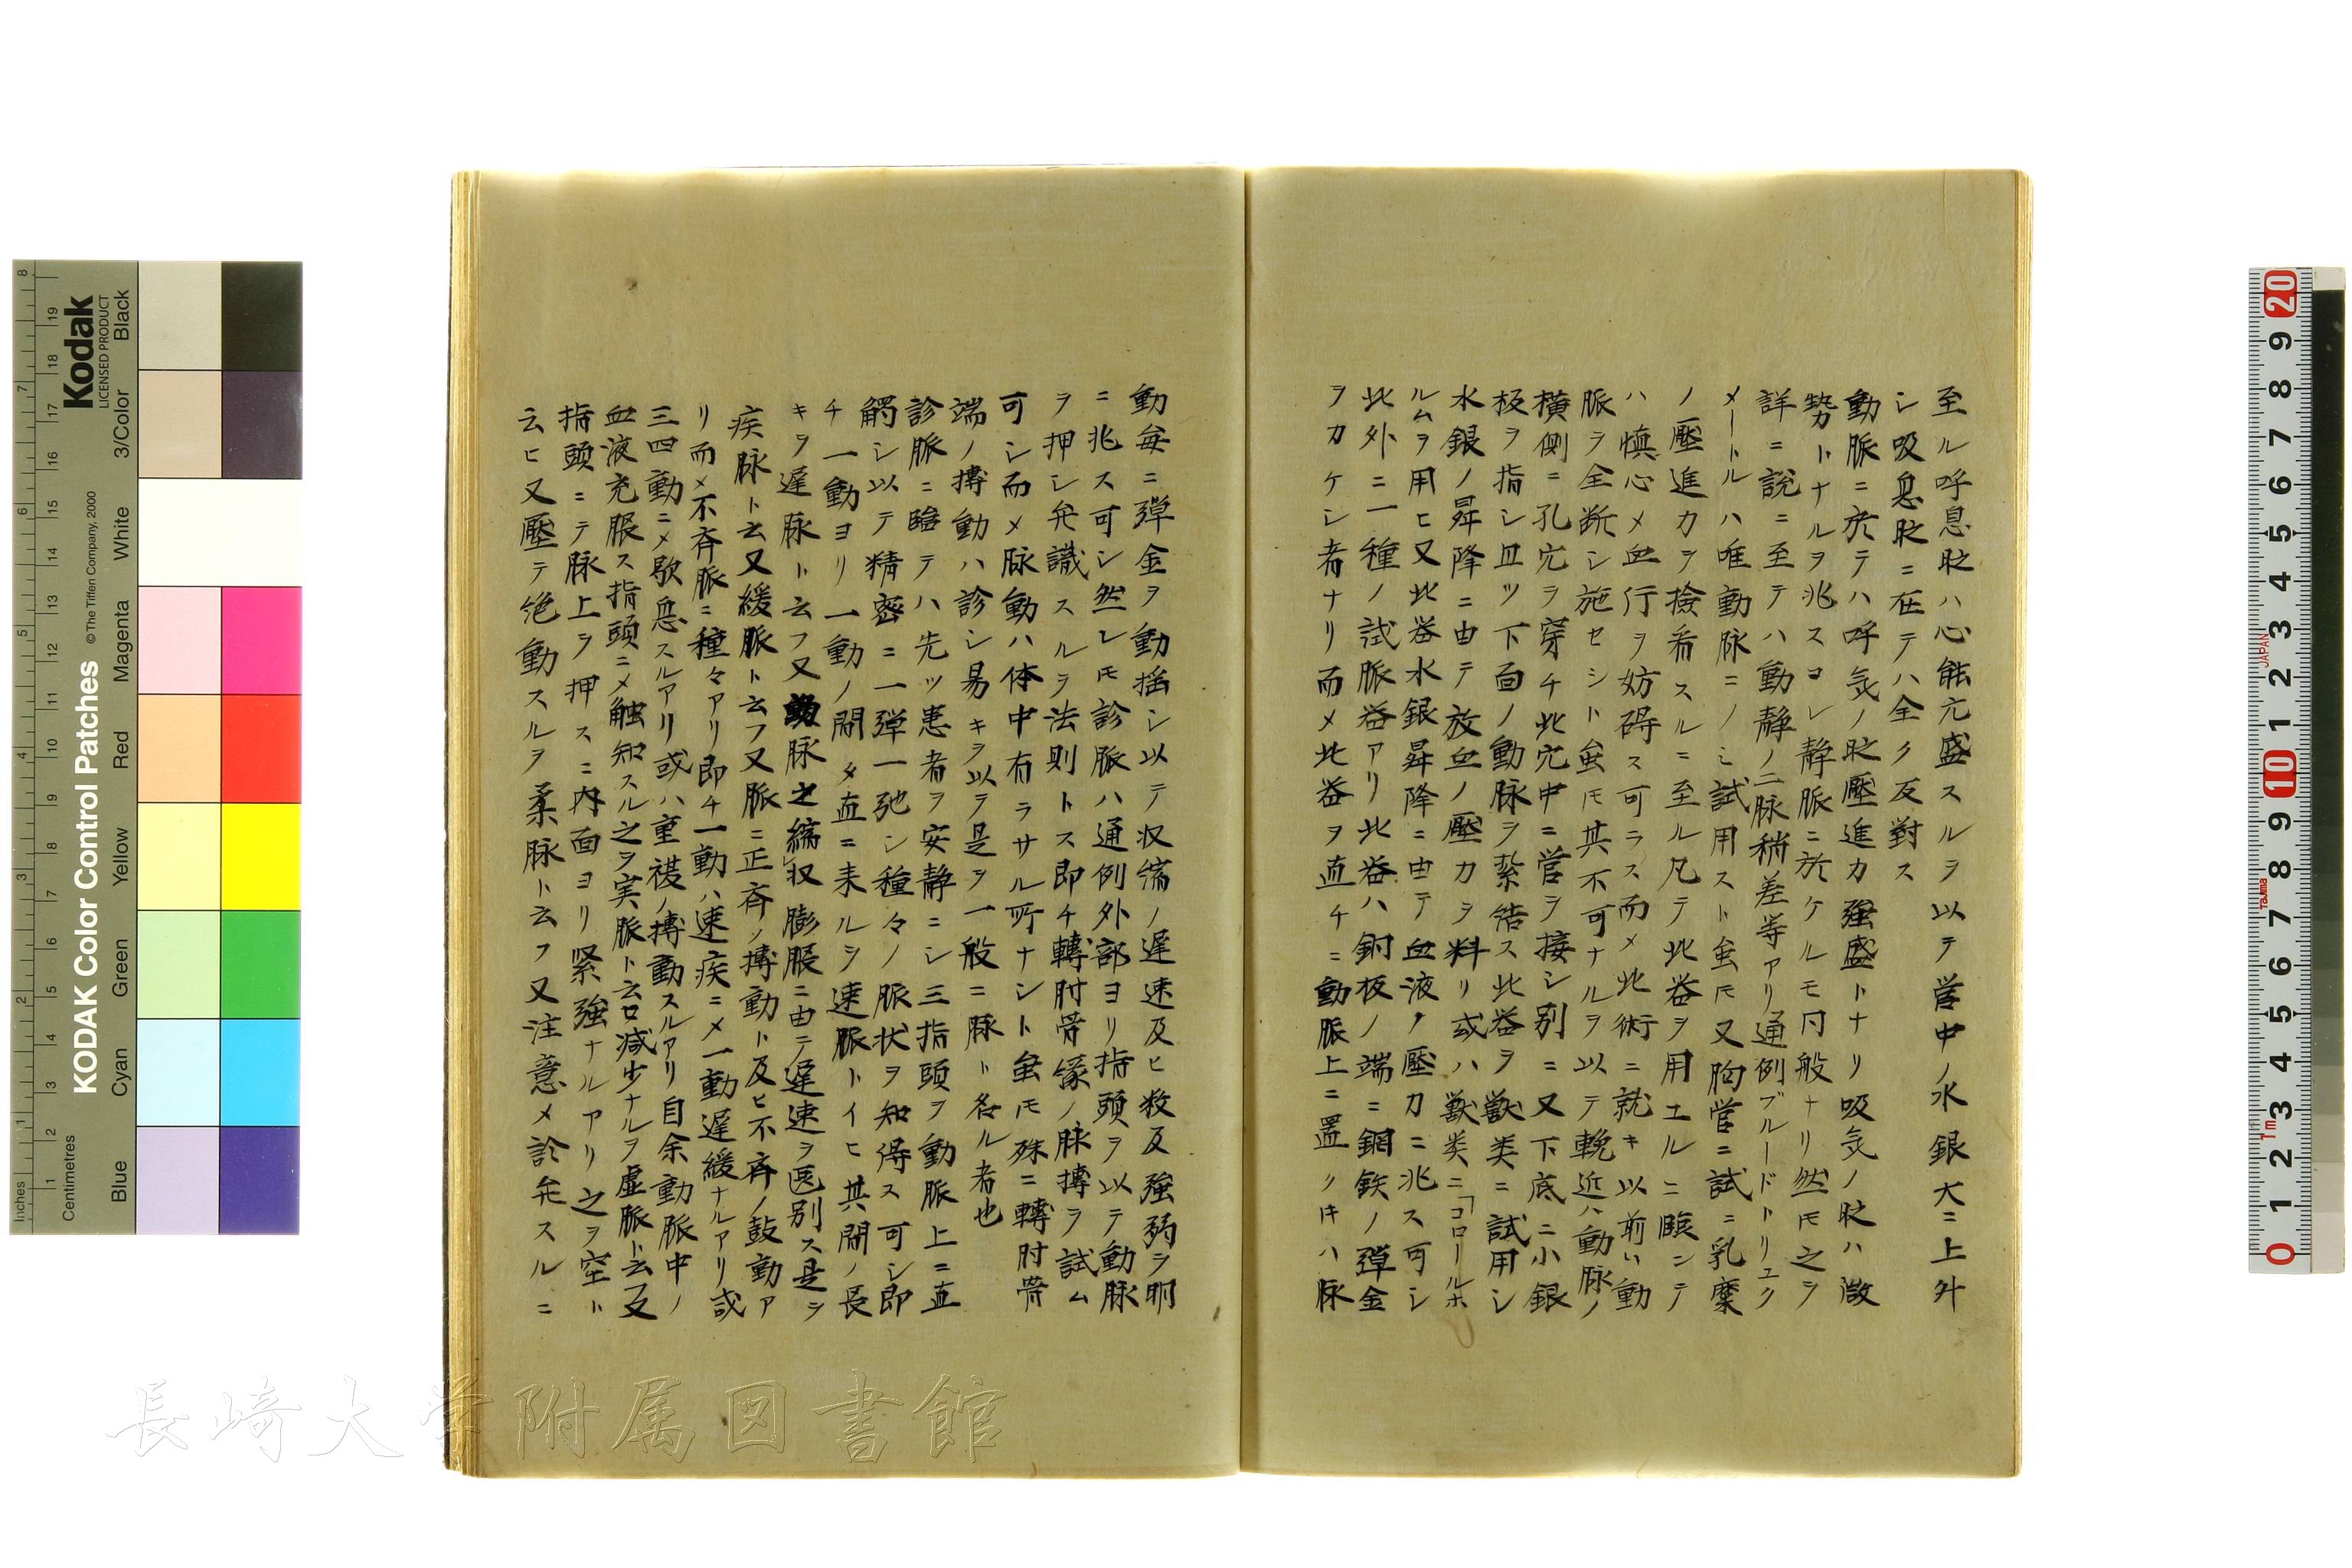 至ル呼息時ハ心能亢盛スルヲ以テ管中ノ水銀大ニ上升
シ吸息時ニ在テハ全ク反對ス
動脈ニ於テハ呼気ノ時壓進力強盛トナリ吸気ノ時ハ微
勢力トナルヲ兆スヨレ静脈ニ於ケルモ同般ナリ然ドモ之ヲ
詳ニ説ニ至テハ動静ノ二脈稍差等アリ通例ブルードドリュク
メートルハ唯動脉ニノミ試用スト虽ドモ又胸管ニ試ニ乳糜
ノ壓進力ヲ撿希スルニ至ル凡テ此器ヲ用エルニ臨ンテ
ハ慎心メ血行ヲ妨碍ス可ラス而メ此術ニ就キ以前ハ動
脈ヲ全断シ施セシト虽ドモ其不可ナルヲ以テ輓近ハ動脉ノ
横側ニ孔穴ヲ穿チ此穴中ニ管ヲ接シ別ニ又下底ニ小銀
板ヲ指シ且ツ下面ノ動脉ヲ紮結ス此器ヲ獣类ニ試用シ
水銀ノ昇降ニ由テ放血ノ壓力ヲ料リ或ハ獣类ニ「コロールホ
ルムヲ用ヒ又此器水銀昇降ニ由テ血液ノ壓力ニ兆ス可シ
此外ニ一種ノ試脈器アリ此器ハ銅板ノ端ニ鋼鉄ノ弾金
ヲカケシ者ナリ而メ此器ヲ直チニ動脈上ニ置クキハ脉
動毎ニ弾金ヲ動揺シ以テ収縮ノ遅速及ヒ数及強弱ヲ明
ニ兆ス可シ然レドモ診脈ハ通例外部ヨリ指頭ヲ以テ動脉
ヲ押シ弁識スルヲ法則トス即チ轉肘骨縁ノ脉搏ヲ試ム
可シ而メ脉動ハ体中有ラサル所ナシト虽ドモ殊ニ轉肘骨
端ノ搏動ハ診シ易キヲ以テ是ヲ一般ニ脉ト名ル者也
診脈ニ臨テハ先ツ患者ヲ安静ニシ三指頭ヲ動脈上ニ直
觸シ以テ精密ニ一弾一弛シ種々ノ脈状ヲ知得ス可シ即
チ一動ヨリ一動ノ間タ直ニ来ルヲ速脈トイヒ其間ノ長
キヲ遅脉ト云フ又動脉之縮収膨脹ニ由テ遅速ヲ区別ス是ヲ
疾脉ト云又緩脈ト云フ又脈ニ正斉ノ搏動ト及ヒ不斉ノ鼓動ア
リ而メ不斉脈ニ種々アリ即チ一動ハ速疾ニメ一動遅緩ナルアリ或
三四動ニメ歇息スルアリ或ハ重複ノ搏動スルアリ自余動脈中ノ
血液充脹ス指頭ニメ触知スル之ヲ実脈ト云ロ減少ナルヲ虚脈ト云又
指頭ニテ脉上ヲ押スニ内面ヨリ緊強ナルアリ之ヲ空ト
云ヒ又壓テ絶動スルヲ柔脉ト云フ又注意メ診弁スルニ
長崎大学附属図書館
KODAK Color Control Patches
© The Tiffen Company, 2000
Kodak
LICENSED PRODUCT
Inches
Centimetres
Blue
Cyan
Green
Yellow
Red
Magenta
White
3/Color
Black
JAPAN